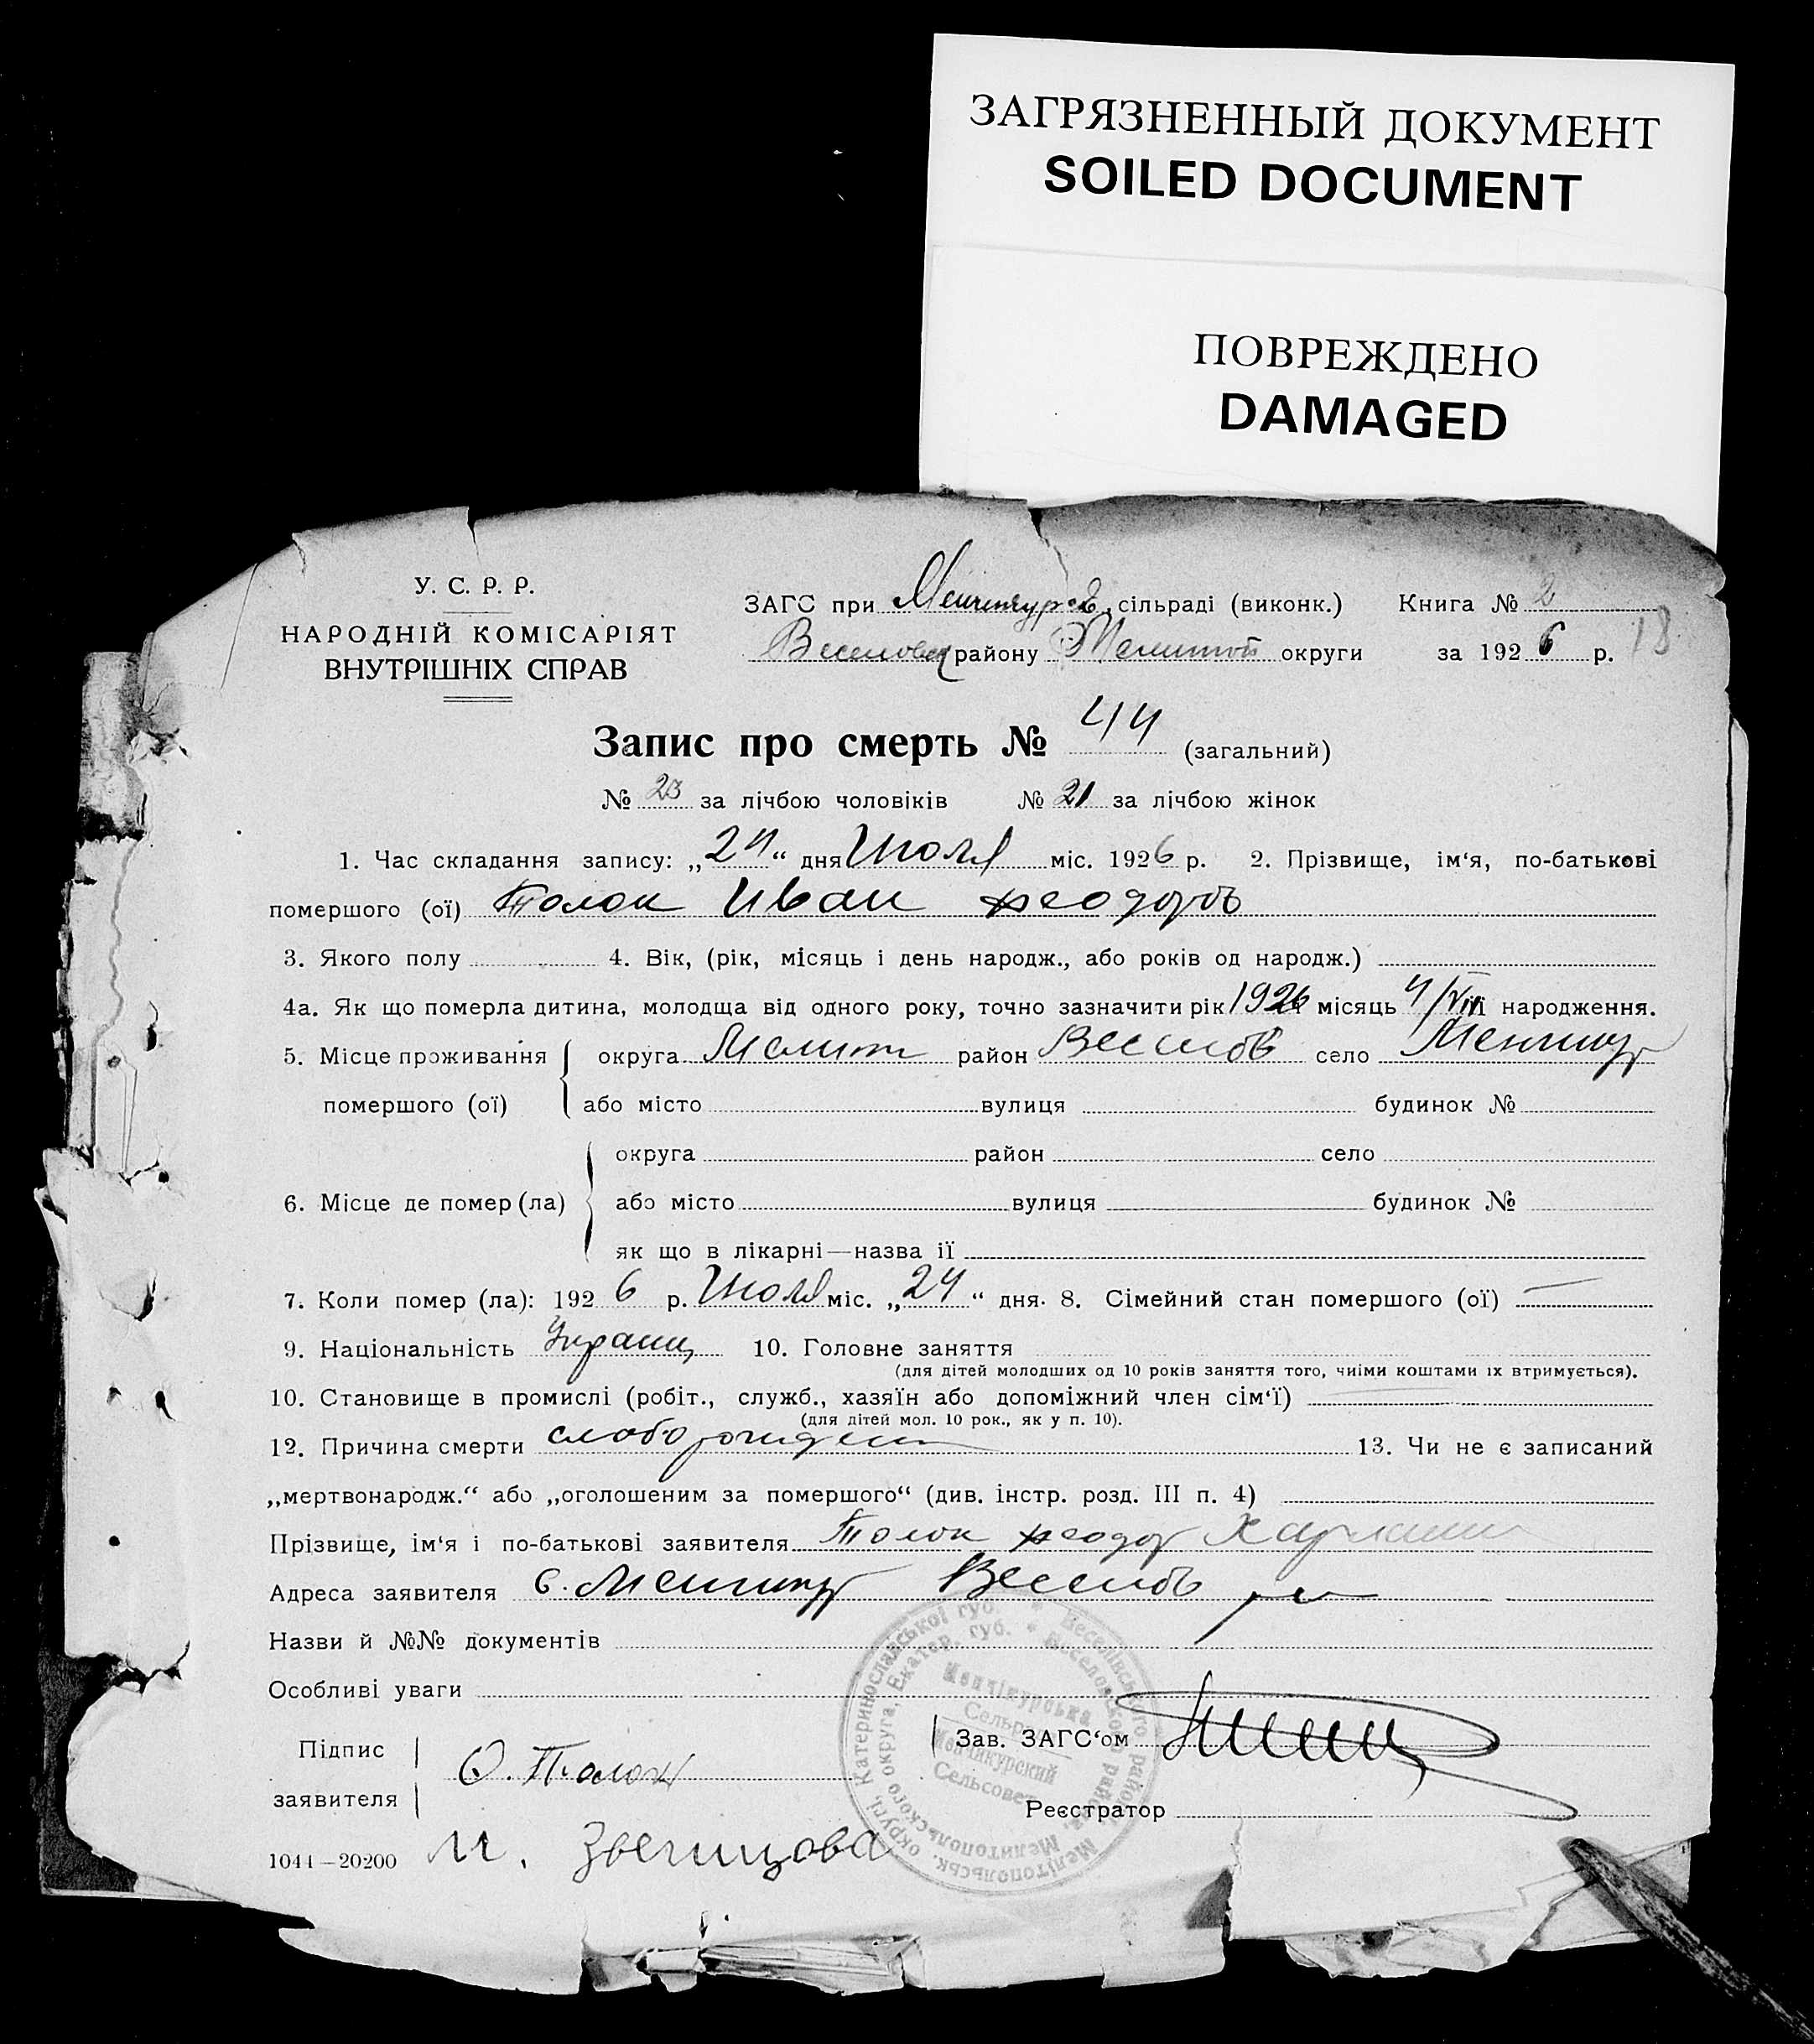 ЗАГРЯЗНЕННЫЙ ДОКУМЕНТ
SOILED DOCUMENT
ПОВРЕЖДЕНО
DAMAGED
У. С. Р. Р.
НАРОДНІЙ КОМІСАРІЯТ
ВНУТРІШНІХ СПРАВ
ЗАГС при сільраді (виконк.) Книга № 2
району округи за 1926 р. 18
Запис про смерть № 44 (загальний)
№ 23 за лічбою чоловіків № 21 за лічбою жінок
1. Час складання запису: „24“ дня Июля міс. 1926 р. 2. Прізвище, ім‘я, по-батькові
помершого (ої) Толок Иван Феодоров
3. Якого полу 4. Вік, (рік, місяць і день народж., або років од народж.)
4а. Як що померла дитина, молодща від одного року, точно зазначити рік 1926 місяць 4/VII народження.
5. Місце проживання округа Мелит район Веселов село Менчикур
помершого (ої) або місто вулиця будинок №
округа район село
6. Місце де помер (ла) або місто вулиця будинок №
як що в лікарні—назва її
7. Коли помер (ла): 1926 р. Июля міс. „24“ дня. 8. Сімейний стан помершого (ої) —
9. Національність Украинц 10. Головне заняття
(для дітей молодших од 10 років заняття того, чиїми коштами їх втримується).
10. Становище в промислі (робіт., служб., хазяїн або допоміжний член сім‘ї)
(для дітей мол. 10 рок., як у п. 10).
12. Причина смерти слаборожден 13. Чи не є записаний
„мертвонародж.“ або „оголошеним за помершого“ (див. інстр. розд. III п. 4)
Прізвище, ім‘я і по-батькові заявителя Толок Феодор
Адреса заявителя с. Менчикур Веселов
Назви й №№ документів
Особливі уваги
Підпис
заявителя Ф. Толок
Зав. ЗАГС‘ом
Реєстратор
1041—20200 М. Звегинцова
Менчікурська
Сельрада
Менчикурский
Сельсовет